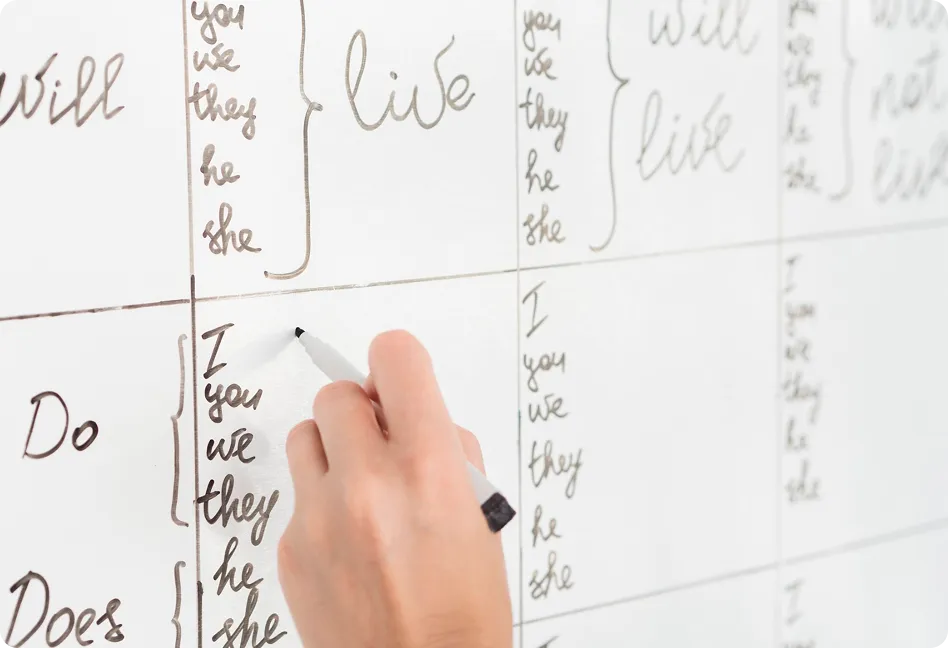 Will
you
we
they
he
she
live
you
we
they
he
she
will
live
you
we
they
he
she
not
Do
Does
I
you
we
they
he
she
I
you
we
they
he
she
I
you
we
they
he
she
I
I